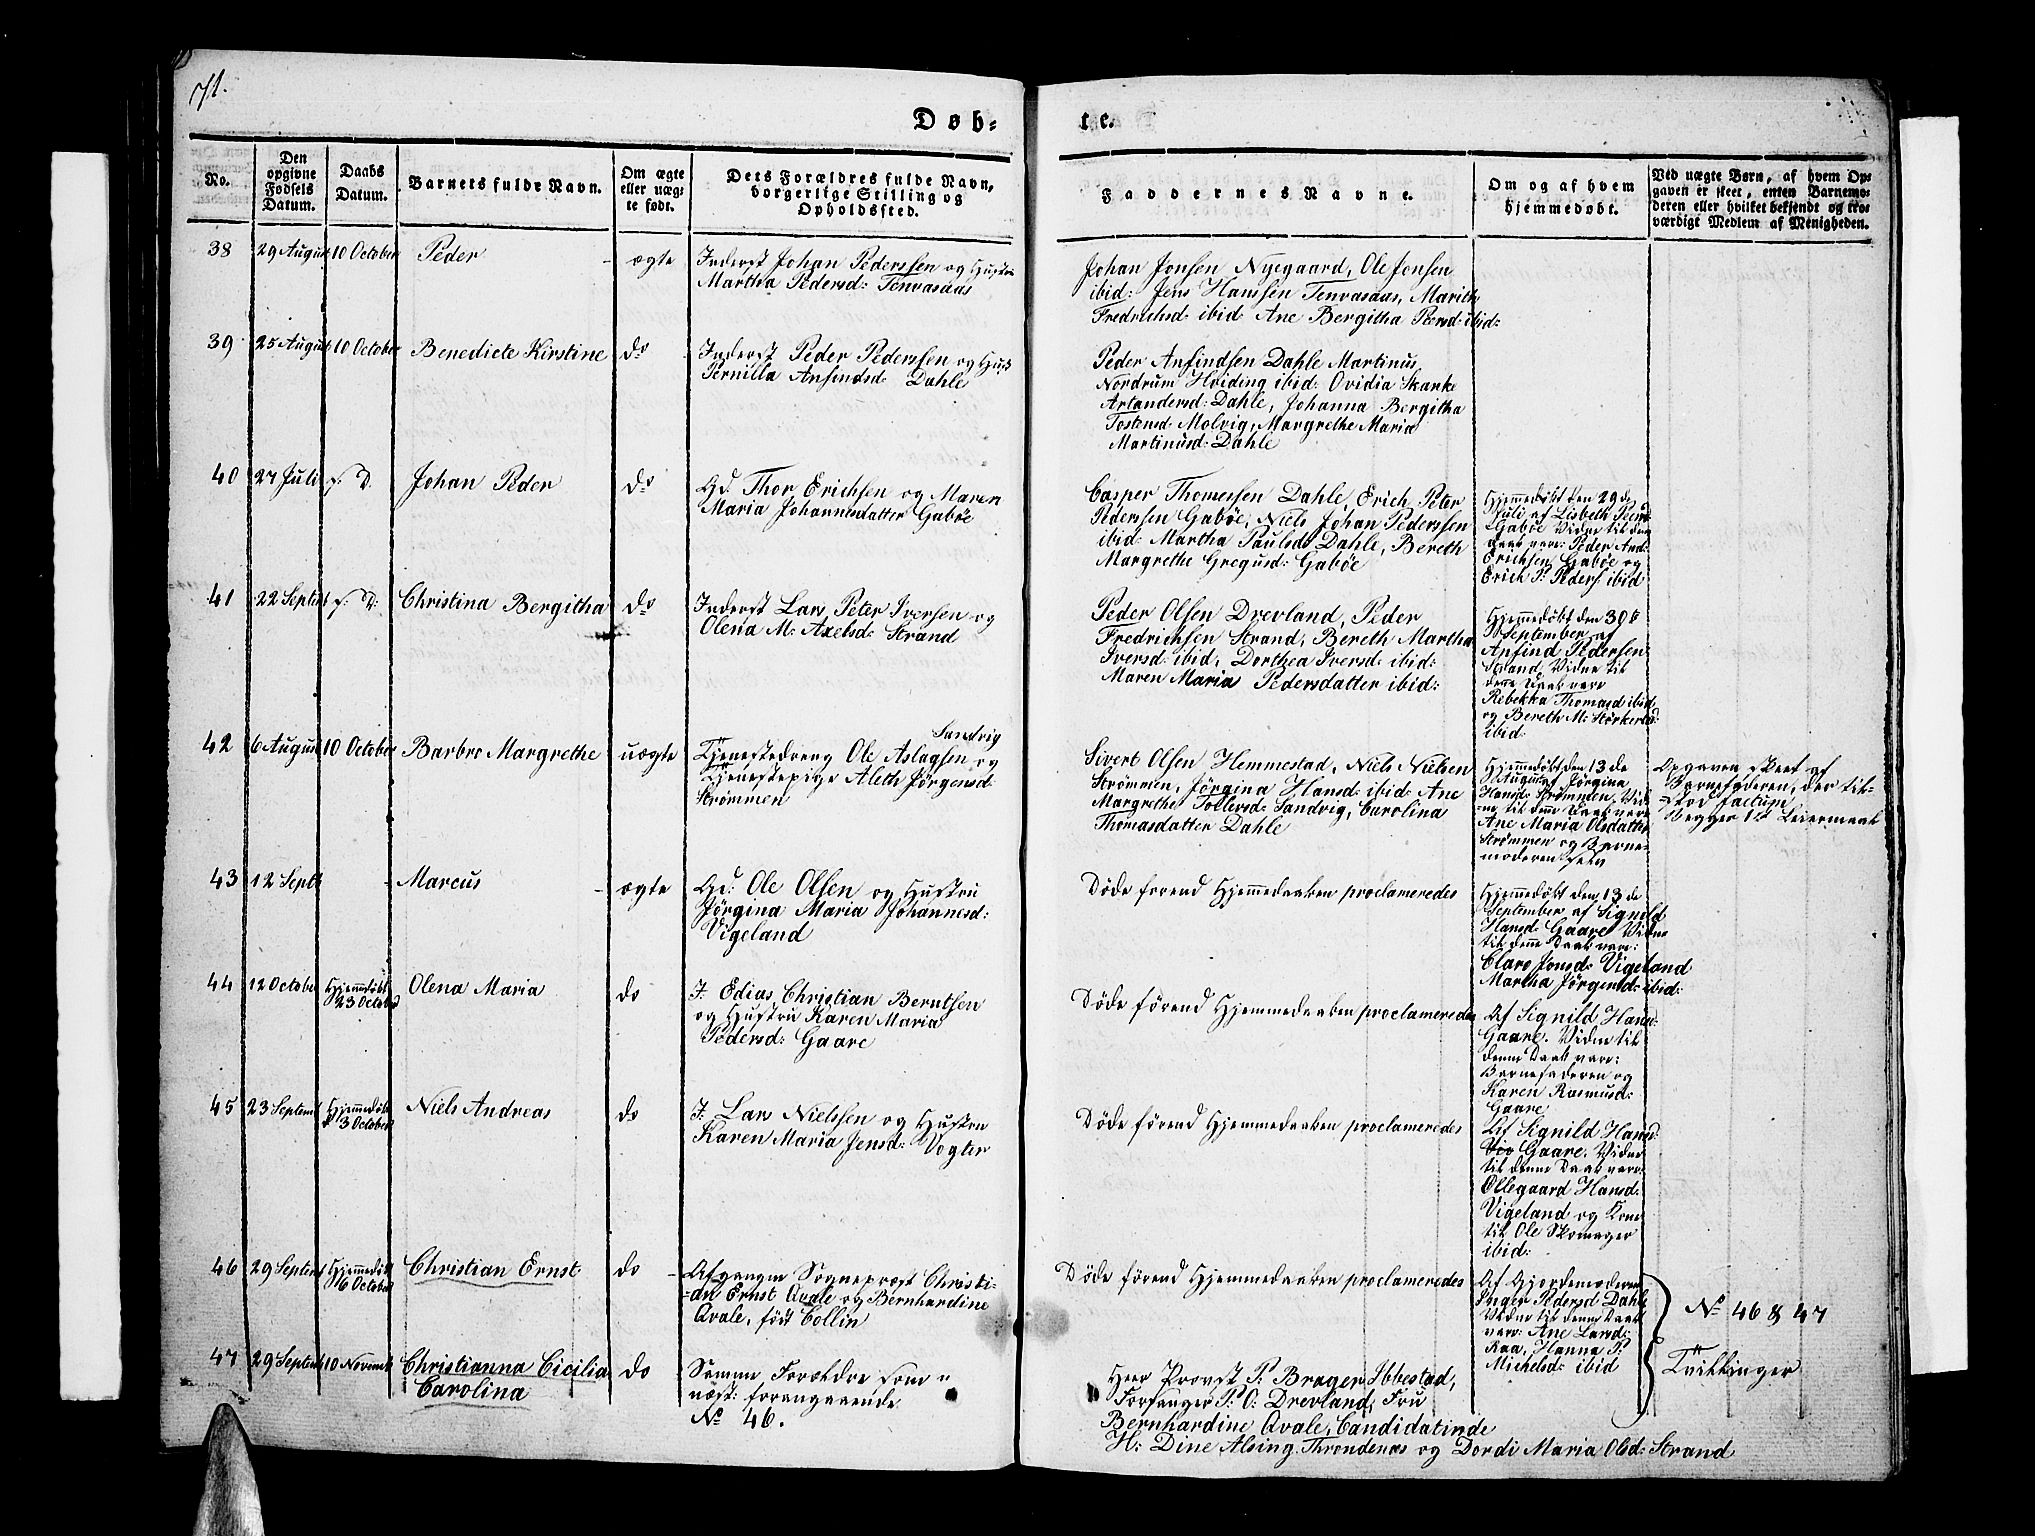 71.
Døb-
te.
No.
Den opgivne Fødsels Datum.
Daabs Datum.
Barnets fulde Navn.
Om ægte eller uæg- te født.
Dets Forældres fulde Navn, borgerlige Stilling og Opholdssted.
Faddernes Navne.
Om og af hvem hjemmedøbt.
Ved uægte Børn, af hvem Op- gaven er skeet, enten Barnemo- deren eller hvilket bekjendt og tro- værdigt Medlem af Menigheden.
38
29 August
10 October
Peder
ægte
Inderst Johan Pederssen og Hustru
Martha Pedersd: Tenvasaas
Johan Jonsen Nyegaard, Ole Jonsen
ibid: Jens Hanssen Tenvasaas, Marith
Fredrichsd: ibid: Ane Bergitha Peersd: ibid:
39
25 August
10 October
Benedicte Kirstine
do
Inderst Peder Pederssen og Hust
Pernilla Anfindsd: Dahle
Peder Anfindsen Dahle Martinus
Nordrum Hviding ibid: Ovidia Skanke
Artandersd: Dahle, Johanna Bergitha
Tostensd: Molvig, Margrethe Maria
Martinusd: Dahle
40
27 Juli
s. D.
Johan Peder
do
Gd. Thor Erichsen og Maren
Maria Johannesdatter Gabøe
Casper Thomessen Dahle, Erich Peter
Pederssen Gabøe, Niels Johan Pederssen
ibid: Martha Paulsd: Dahle, Bereth
Margrethe Gregusd: Gabøe
Hjemmedøbt den 29 de
Juli af Lisbeth Peersd
Gabøe Vidne til den
Daab vare: Peder And:
Erichsen Gabøe og
Erich P. Peders: ibid
41
22 Septemb
s: D:
Christina Bergitha
do
Inderst Lars Peter Iversen og
Olena M: Axelsd: Strand
Peder Olsen Drevland, Peder
Fredrichsen Strand, Bereth Martha
Iversd: ibid, Dorthea Iversd: ibid:
Maren Maria Pedersdatter ibid:
Hjemmedøbt den 30te
September af
Anfind Pedersen
Strand, Vidne til
denne Daab vare
Rebekka Thomasd ibid
og Bereth M: Størkersd:
ibid:
42
6 August
10 October
Barbro Margrethe
uægte
Sandvig
Tjenestedreng Ole Aslagsen og
Tjenestepige Aleth Jørgensd:
Strømmen
Sivert Olsen Hemmestad, Niels Nielsen
Strømmen, Jørgina Hansd: ibid: Ane
Margrethe Tollersd: Sandvig, Carolina
Thomasdatter Dahle
Hjemmedøbt den 13 de
August af Jørgina
Hansd: Strømmen, Vid-
ne til denne Daab vare
Ane Maria Olsdatter
Strømmen og Barne-
moderen selv
Opgaven skeet af
Barnefaderen, der til-
stod factum
Begges 1ste Leiermaal
43
12 Septb
Marcus
ægte
Gd: Ole Olsen og Hustru
Jørgina Maria Johannesd:
Vigeland
Døde førend Hjemmedaaben proclameredes
Hjemmedøbt den 13 de
September af Signild
Hansd: Gaare. Vidne
til denne Daab vare:
Clare Jonsd: Vigeland
Martha Jørgensd: ibid:
44
12 October
Hjemmedøbt
23 October
Olena Maria
do
I: Edias Christian Berntsen
og Hustru Karen Maria
Pedersd: Gaare
Døde førend Hjemmedaaben proclameredes
Af Signild Hansd:
Gaare. Vidne til
denne Daab vare:
Barnefaderen og
Karen Rasmusd:
Gaare
45
23 Septemb
Hjemmedøbt
d 3 October
Niels Andreas
do
I: Lars Nielssen og Hustru
Karen Maria Jensd: Vogter
Døde førend Hjemmedaaben proclameredes
Af Signild Hansd:
Gaare. Vidne
til denne Daab vare:
Ollegaard Hansd:
Vigeland og Kone
til Ole Skomager
ibid:
46
29 Septemb
Hjemmedøbt
6 October
Christian Ernst
do
Afgangen Sognepræst Christi-
-an Ernst Qvale og Bernhardine
Qvale, født Collin
Døde førend Hjemmedaaben proclameredes
Af Gjordemoderen
Inger Pedersd Dahle
Vidne til denne Daab
vare: Ane Larsd:
Raa, Hanna P.
Michelsd: ibid
No 46 & 47
Tvillinger
47
29 Septemb
10 Novemb
Christianna Cicilia
Carolina
do
Samme Forældre som
næst: foregaaende
No 46.
Herr Provst P. Brager Ibbestad,
Forsanger P: O: Drevland, Fru
Bernhardine Qvale, Candidatinde
H: Dine Alsing, Throndenæs og Dordi Maria Olsd: Strand